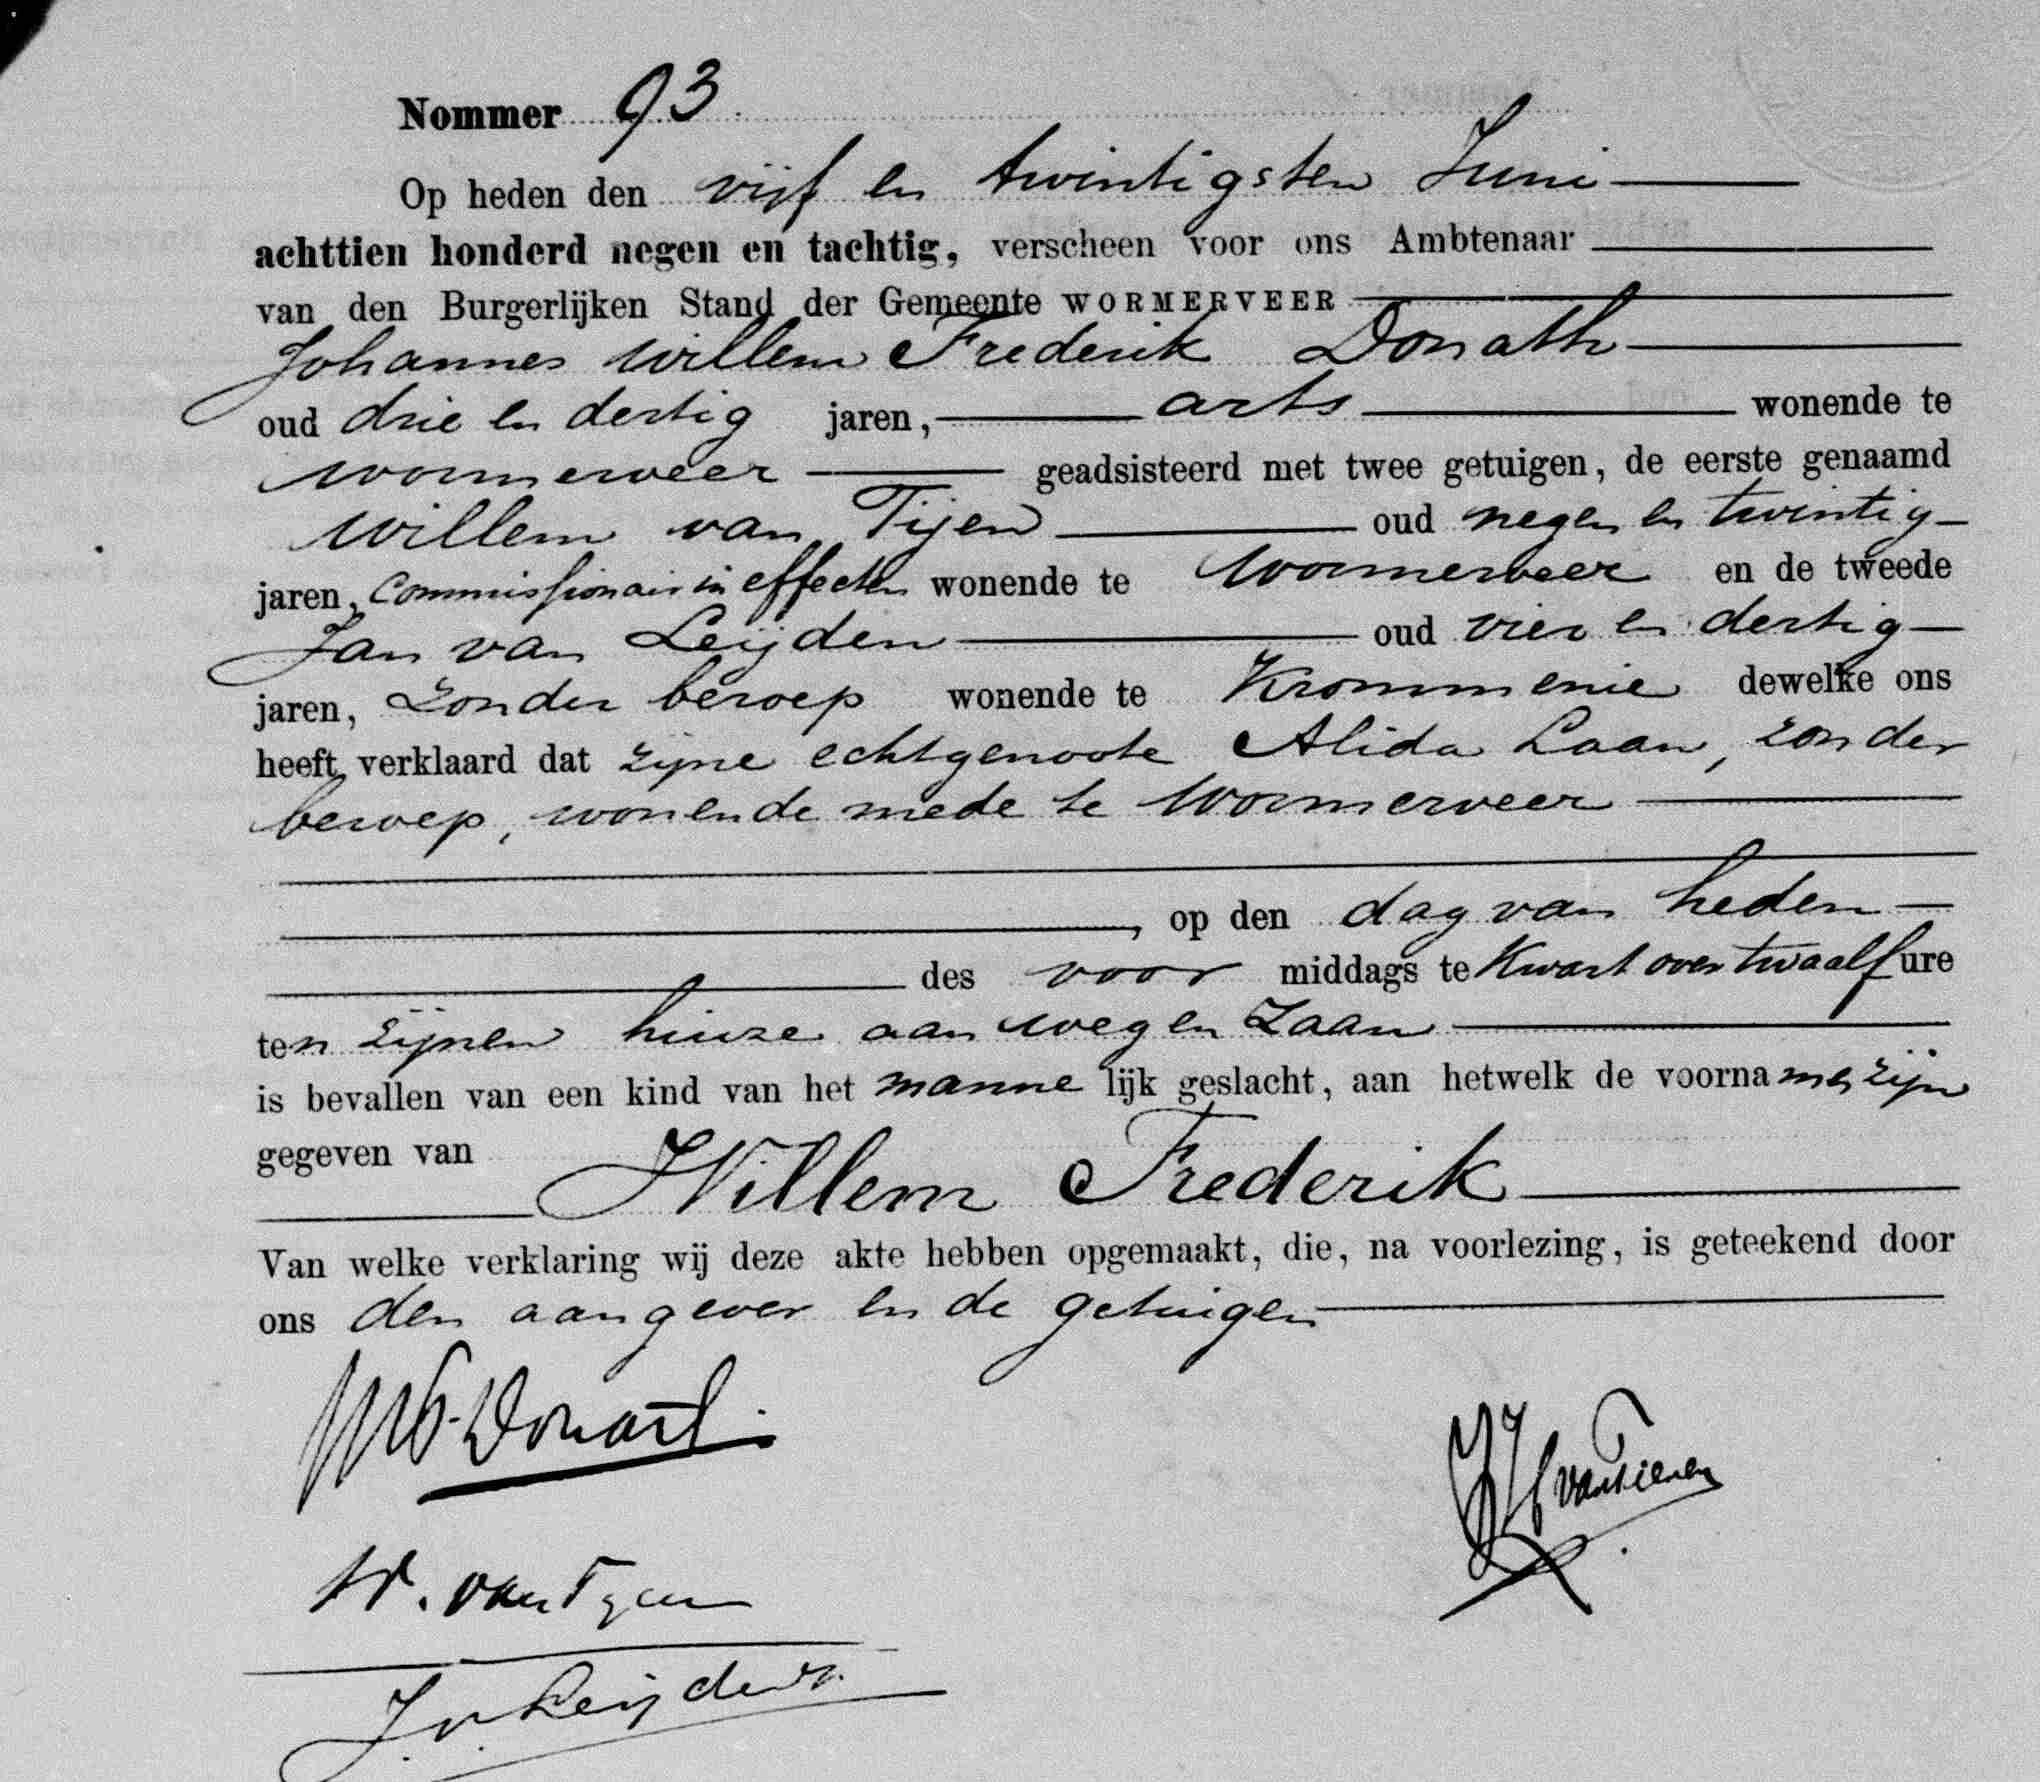 Nommer 93
Op heden den vijf en twintigsten Juni
achttien honderd negen en tachtig, verscheen voor ons Ambtenaar
van den Burgerlijken Stand der Gemeente WORMERVEER
Johannes Willem Frederik Donath
oud drie en dertig jaren, arts wonende te
Wormerveer geadsisteerd met twee getuigen, de eerste genaamd
Willem van Tijen oud negen en twintig
jaren, Commissionair in effecten wonende te Wormerveer en de tweede
Jan van Leijden oud vier en dertig
jaren, zonder beroep wonende te Krommenie dewelke ons
heeft verklaard dat zijne echtgenoote Alida Laan, zonder
beroep, wonende mede te Wormerveer
, op den dag van heden
des voor middags te Kwart over twaalf ure
ten zijnen huize aan weg en Zaan
is bevallen van een kind van het manne lijk geslacht, aan hetwelk de voornamen zijn
gegeven van
Willem Frederik
Van welke verklaring wij deze akte hebben opgemaakt, die, na voorlezing, is geteekend door
ons den aangever en de getuigen
Donath
van Tienen
W. van Tijen
J. v. Leijden